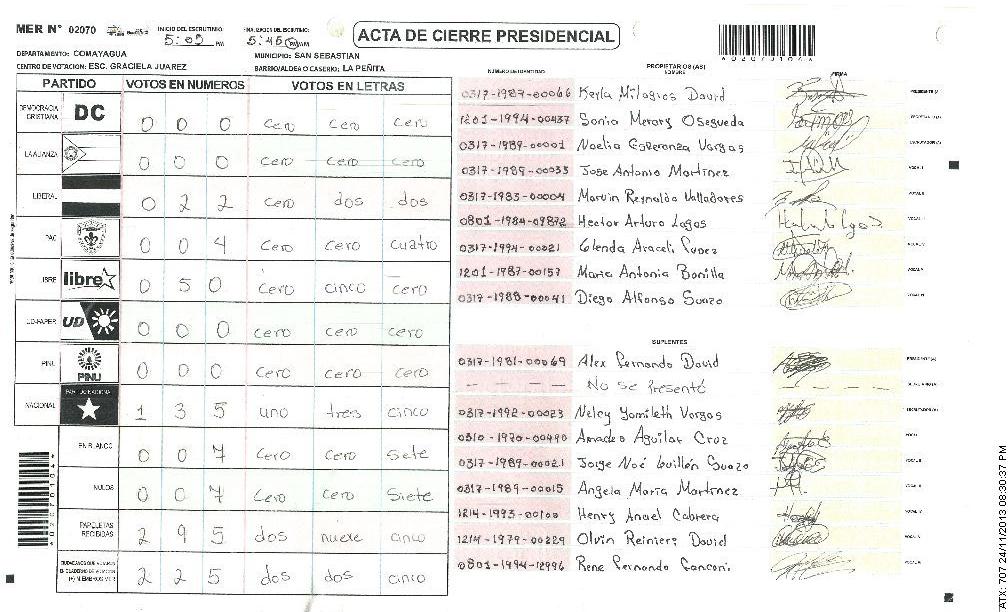 MER N° 02070
INICIO DEL ESCRUTINIO:
5:05 PM
5:45 PM/AM.
ACTA DE CIERRE PRESIDENCIAL
DEPARTAMENTO: COMAYAGUA
MUNICIPIO: SAN SEBASTIAN
CENTRO DE VOTACION: ESC. GRACIELA JUAREZ
BARRIO/ALDEA O CASERIO: LA PEÑITA
PARTIDO VOTOS EN NUMEROS VOTOS EN LETRAS
DEMOCRACIA CRISTIANA DC 0 0 0 cero cero cero
LA ALIANZA 0 0 0 cero cero cero
LIBERAL 0 2 2 cero dos dos
PAC 0 0 4 cero cero cuatro
LIBRE libre 0 5 0 cero cinco cero
UD-FAPER UD 0 0 0 cero cero cero
PINU PINU 0 0 0 cero cero cero
NACIONAL PARTIDO NACIONAL 1 3 5 uno tres cinco
EN BLANCO 0 0 7 cero cero siete
NULOS 0 0 7 cero cero siete
PAPELETAS RECIBIDAS 2 9 5 dos nueve cinco
2 2 5 dos dos cinco
NUMERO DE IDENTIDAD PROPIETARIOS (AS) NOMBRE FIRMA
0317-1987-00066 Keyla Milagros David PRESIDENTE (A)
1201-1994-00437 Sonia Merary Osegueda
0317-1989-00001 Noelia Esperanza Vargas ESCRUTADOR (A)
0317-1989-00033 Jose Antonio Martinez VOCAL I
0317-1983-00004 Marvin Reynaldo Valladores
0801-1984-09872 Hector Arturo Lagos
0317-1994-00021 Glenda Araceli
1201-1987-00157 Maria Antonia Bonilla
0317-1988-00041 Diego Alfonso Suazo
SUPLENTES
0317-1981-00069 Alex Fernando David PRESIDENTE (A)
No se Presentó
0317-1992-00023 Nelcy Yamileth Vargas
0310-1970-00490 Amadeo Aguilar Cruz
0317-1989-00021 Jorge Noé Guillén Suazo
0317-1989-00015 Angela María Martínez
1214-1993-00100 Henry Anael Cabrera
1214-1979-00229 Olvin Reiniery David
0801-1994-12996 Rene Fernando
ATX: 707 24/11/2013 08:30:37 PM